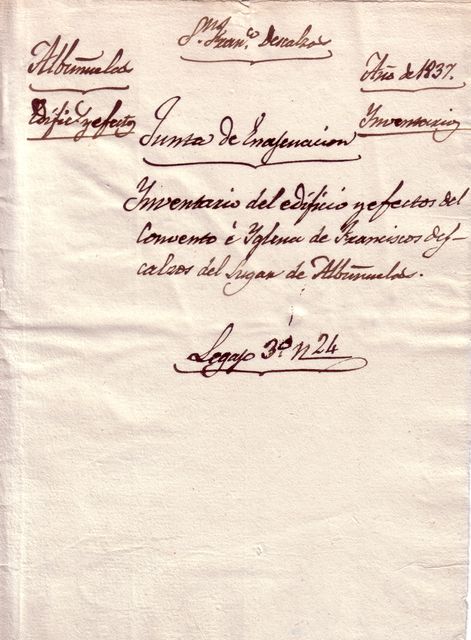 Sns
Franco Descalzos
Albuñuelas
Año de 1837.
Edificio y efectos
Inventario
Junta de Enagenacion
Inventario del edificio y efectos del
Convento é Yglesia de Franciscos des-
calzos del Lugar de Albuñuelas.
Legajo 3º n 24